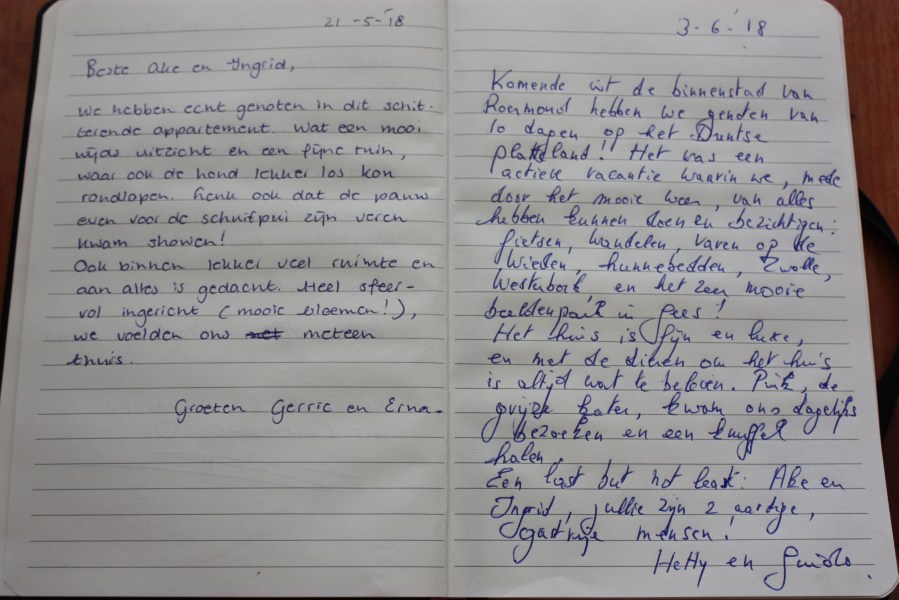 21-5-'18
Beste Ake en Ingrid,
We hebben echt genoten in dit schit-
terende appartement. Wat een mooi
uitzicht en een fijne tuin,
waar ook de hond lekker los kon
rondlopen. Leuk ook dat de pauw
even voor de schuifpui zijn veren
kwam showen!
Ook binnen lekker veel ruimte en
aan alles is gedacht. Heel sfeer-
vol ingericht (mooie bloemen!),
we voelden ons met meteen
thuis.
Groeten Gerrie en Erna.
3-6-'18
Komende uit de binnenstad van
Roermond hebben we genoten van
10 dagen op het Drentse
platteland! Het was een
actieve vacantie waarin we, mede
door het mooie weer, van alles
hebben kunnen doen en bezichtigen:
fietsen, wandelen, varen op de
Wieden, hunnebedden, Zwolle,
Westerbork, en het zeer mooie
beeldenpark in Gees!
Het huis is fijn en luxe,
en met de dieren om het huis
is altijd wat te beleven. Pink, de
grijze kater, kwam ons dagelijks
bezoeken en een knuffel
halen.
Een last but not least: Ake en
Ingrid, jullie zijn 2 aardige,
gastvrije mensen!
Hetty en Guido.